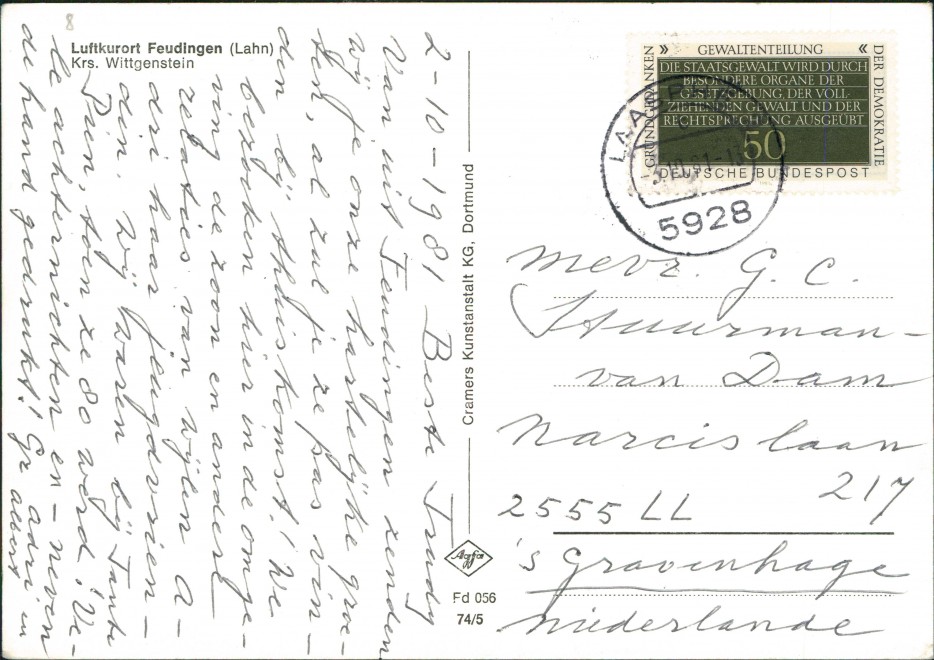 8
Luftkurort Feudingen (Lahn)
Krs. Wittgenstein
2-10-1981 Beste Trudy
Van uit Feudingen zenden
wij je onze hartelijke groe-
ten, al zul je ze pas vin-
den bij thuiskomst! We
bezoeken hier in de omge-
ving de zoon en andere
relaties van wijlen A-
dri haar jeugdvrien-
din. Wij waren bij Tante
Dien, toen ze 80 werd! Ve-
le achternichten en - neven
de hand gedrukt! Gr adri en
albert
Cramers Kunstanstalt KG, Dortmund
Agfa
Fd 056
74/5
GRUNDGEDANKEN » GEWALTENTEILUNG « DER DEMOKRATIE
DIE STAATSGEWALT WIRD DURCH
BESONDERE ORGANE DER
GESETZGEBUNG, DER VOLL-
ZIEHENDEN GEWALT UND DER
RECHTSPRECHUNG AUSGEÜBT
50
DEUTSCHE BUNDESPOST
5928
mevr. G. C.
Stuurman-
van Dam
Narcislaan
217
2555 LL
's Gravenhage
niederlande